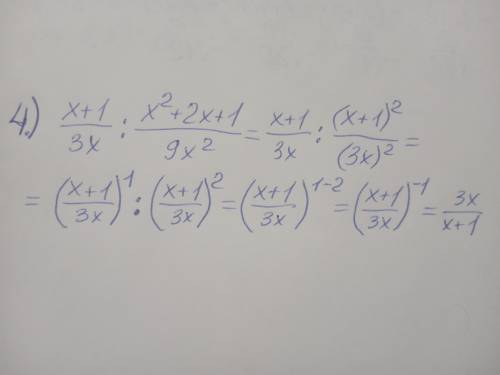 4.) \frac{x+1}{3x} : \frac{x^2+2x+1}{9x^2} = \frac{x+1}{3x} : \frac{(x+1)^2}{(3x)^2} =
= \left(\frac{x+1}{3x}\right)^1 : \left(\frac{x+1}{3x}\right)^2 = \left(\frac{x+1}{3x}\right)^{1-2} = \left(\frac{x+1}{3x}\right)^{-1} = \frac{3x}{x+1}